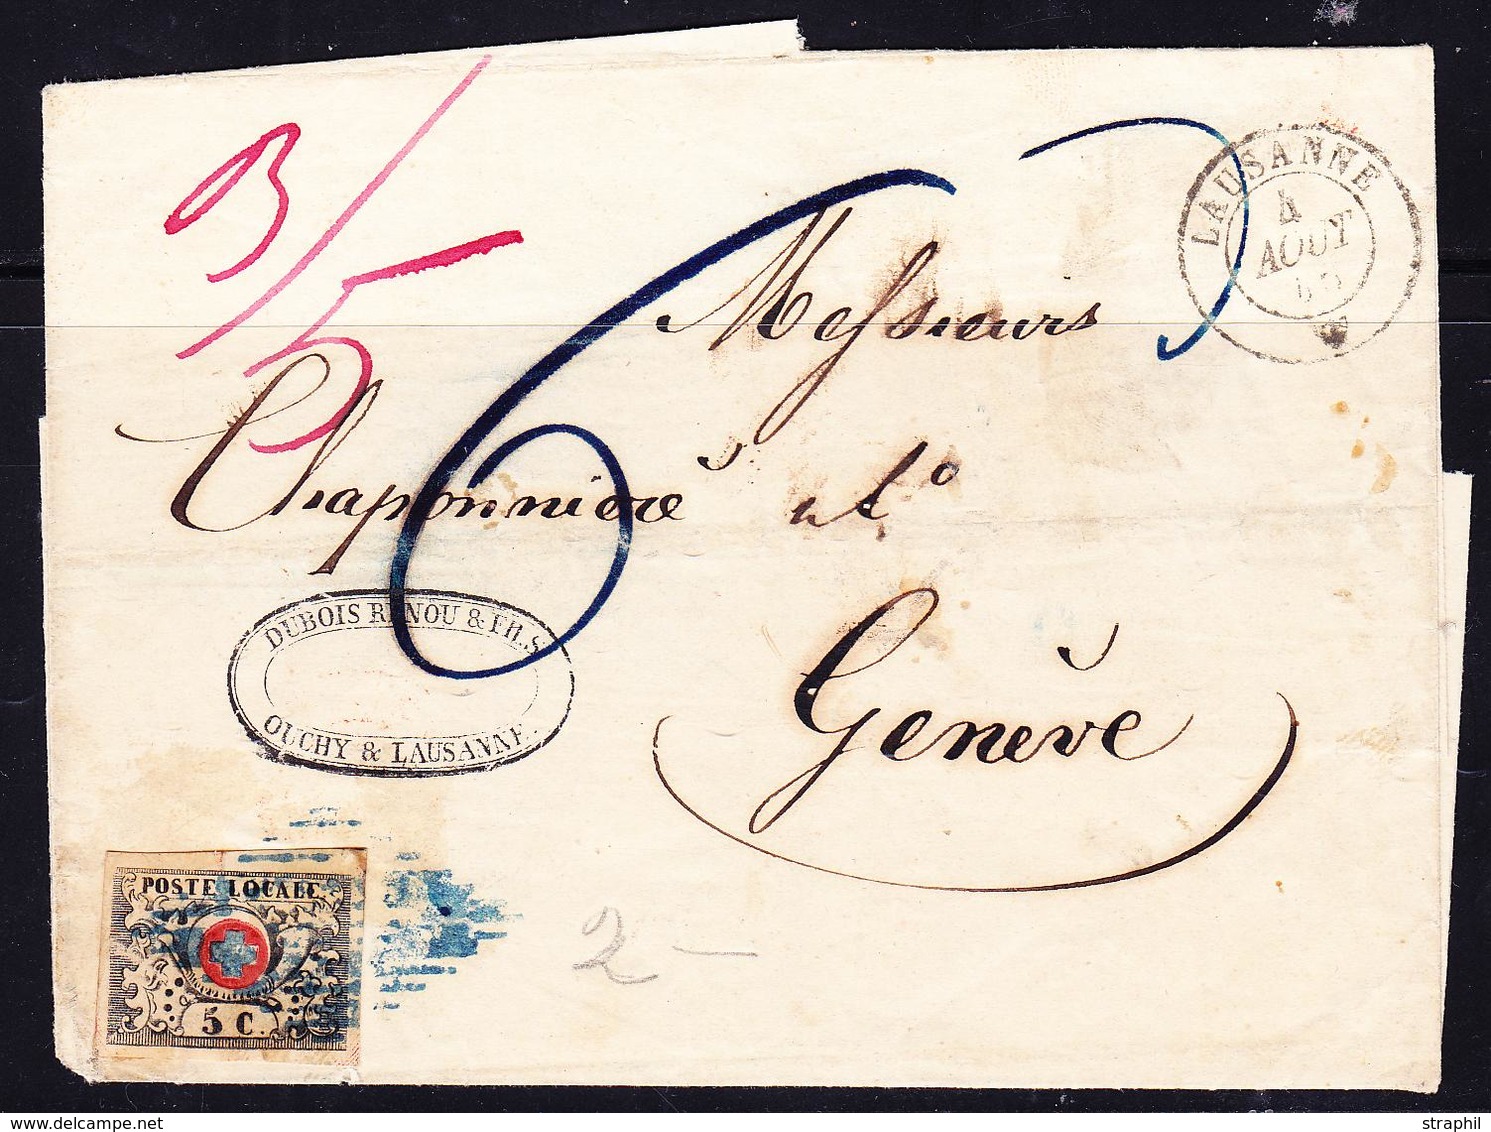 B/5
6
LAUSANNE
4
AOUT
Messieurs
Chaponnière et Cº
Genève
DUBOIS RENOU & FILS
OUCHY & LAUSANNE.
POSTE LOCALE
5 C.
2 —
straphil @ delcampe.net